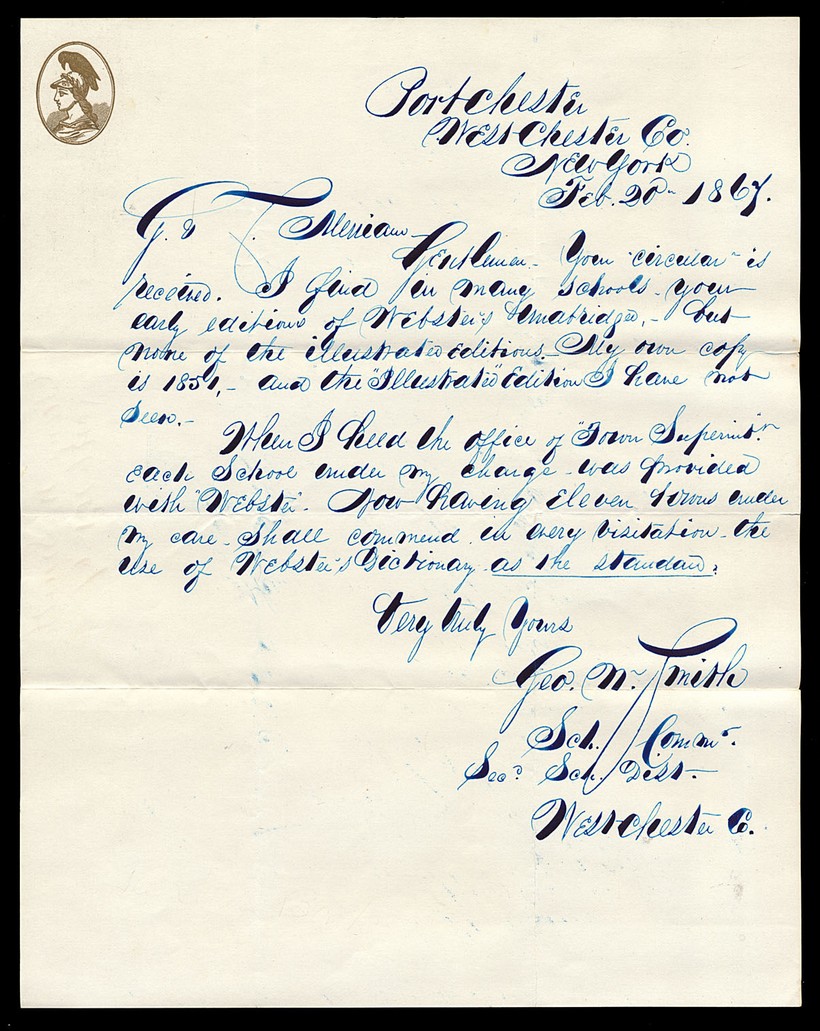 Portchester
WestChester Co.
New York
Feb. 20th 1867.
G. & C. Merriam
Gentlemen - Your "circular" is
received. I find in many schools - your
early editions of Webster's Unabridged, - but
none of the illustrated editions. - My own copy
is 1851, - and the "Illustrated" Edition I have not
seen. -
When I held the office of "Town Superint.n"
each School under my charge - was provided
with "Webster". Now having eleven towns under
my care - shall commend in every visitation - the
use of Webster's Dictionary as the standard.
Very truly Yours
Geo. W. Smith
Sch. Commr.
Secd Sch. Dist. -
WestChester Co.